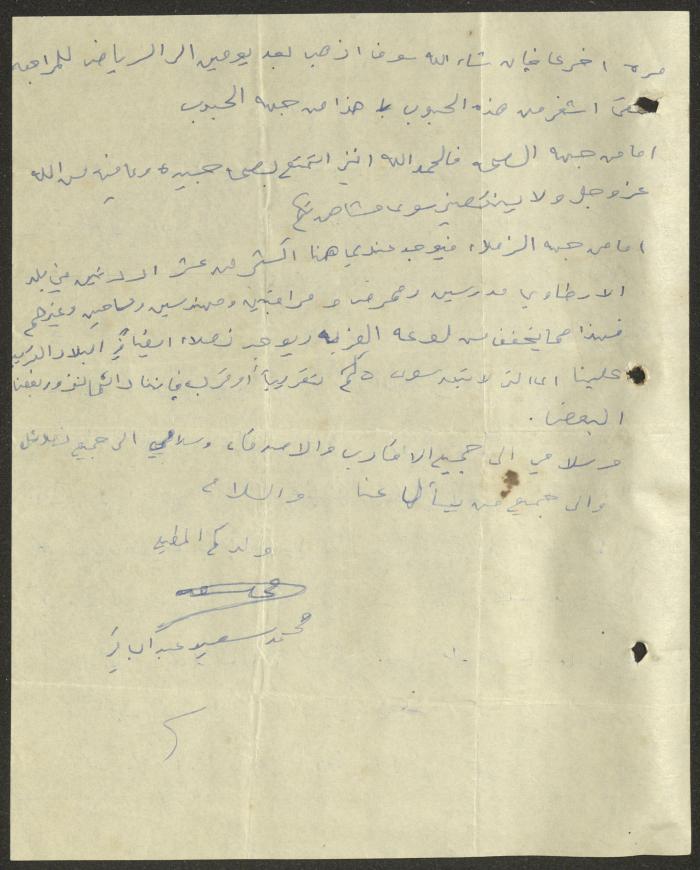 مرة اخرى فان شاء الله سوف اذهب بعد يومين الى الرياض للمراجعه
حتى اشفى من هذه الحبوب هذا من جهه الحبوب
اما من جهه الصحه فالحمد لله انني اتمتع بصحه جيده وعافيه من الله
عز وجل ولا ينقصني سوى مشاهدتكم
اما من جهه الزملاء فيوجد عندي هنا اكثر من عشر اردنيين في بلد
الارطاوي مدرسين وممرض و مراقبين ومهندسين ومساحين وغيرهم
فهذا مما يخفف من لوعه الغربه ويوجد زملاء ايضاً في البلاد القريبه
علينا اي التي لا تبعد سوى ٥ كم تقريباً أو قرب فاننا دائماً نزور بعضنا
البعض .
وسلامي الى جميع الاقارب والاصدقاء وسلامي الى جميع
والى جميع من يسأل عنا والسلام
ولدكم المطيع
محمد سعيد